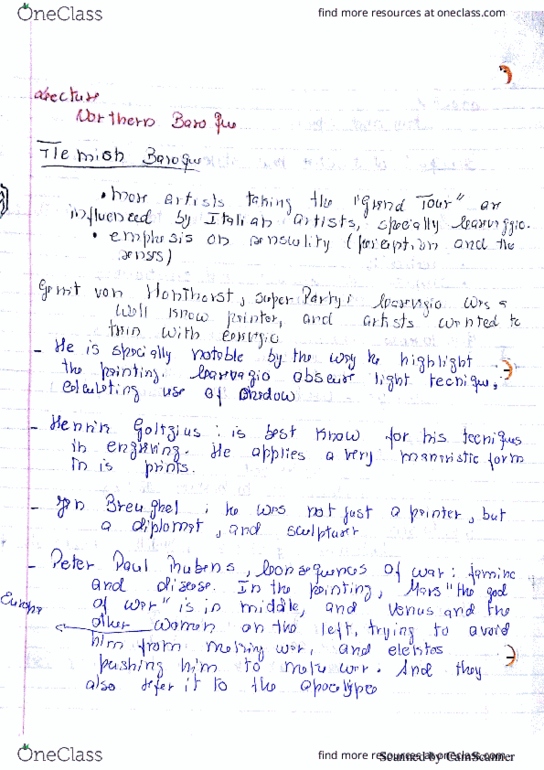 OneClass
find more resources at oneclass.com
Lecture
Northern Baroque
Flemish Baroque
• more artists taking the "Grand Tour" are
influenced by Italian artists, specially
• emphesis on senswlity (perception and the
senses)
Gerrit von Honthorst, super Party: was a
well know painter, and artists wanted to
with
- He is specially notable by the way he highlight
the painting. light tecnique,
use of shadow
- Henrik Goltzius: is best know for his tecniqus
in engriving. He applies a very maneristic form
in is prints.
- Jan Breughel : he was not just a painter, but
a diplomat, and
- Peter Paul Rubens, Consequences of war: famine
and disease. In the painting, Mars "the god
Europe
of war" is in middle, and Venus and the
other women on the left, trying to avoid
him from making war, and
pushing him to make war. And they
also it to the
OneClass
find more resources at oneclass.com
Scanned by CamScanner